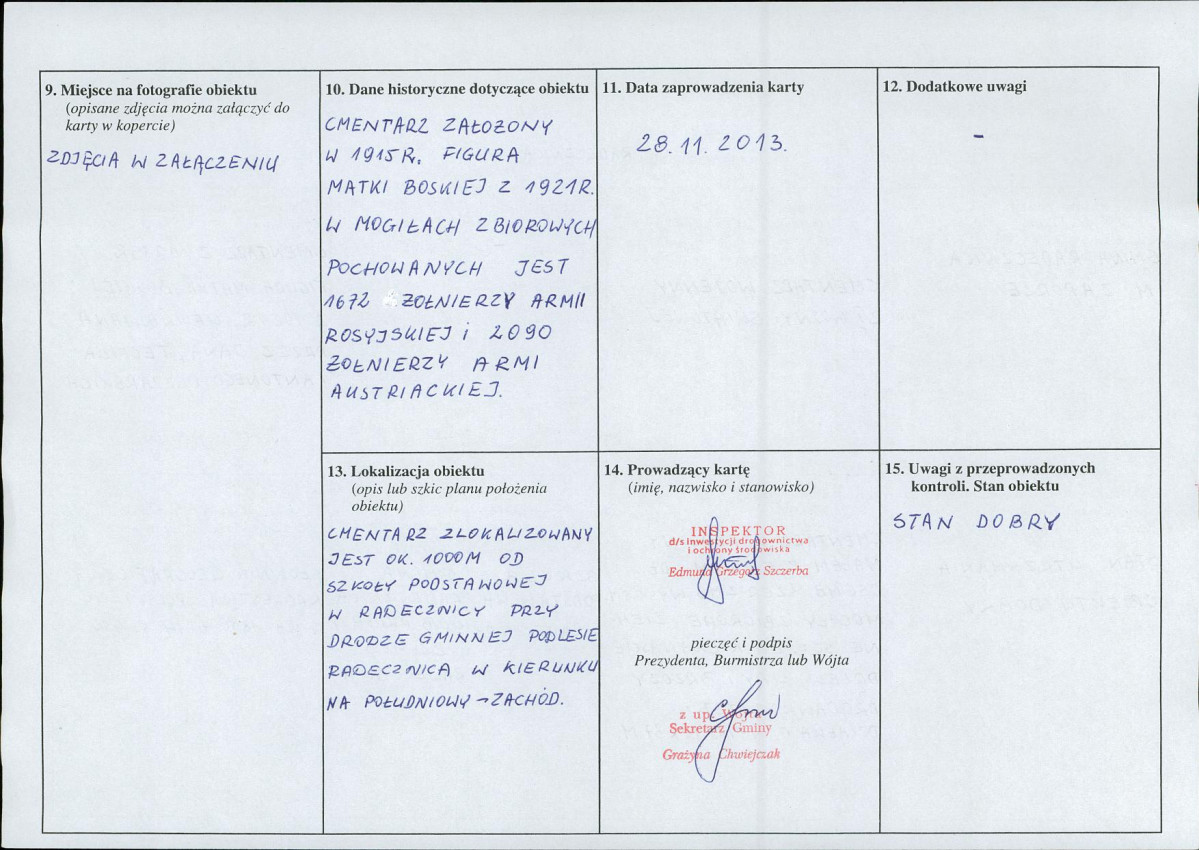 9. Miejsce na fotografie obiektu
(opisane zdjęcia można załączyć do
karty w kopercie)
ZDJĘCIA W ZAŁĄCZENIU
10. Dane historyczne dotyczące obiektu
CMENTARZ ZAŁOŻONY
W 1915R. FIGURA
MATKI BOSKIEJ Z 1921R.
W MOGIŁACH ZBIOROWYCH
POCHOWANYCH JEST
1672 ŻOŁNIERZY ARMII
ROSYJSKIEJ i 2090
ŻOŁNIERZY ARMI
AUSTRIACKIEJ.
11. Data zaprowadzenia karty
28.11.2013.
12. Dodatkowe uwagi
-
13. Lokalizacja obiektu
(opis lub szkic planu położenia
obiektu)
CMENTARZ ZLOKALIZOWANY
JEST OK. 1000M OD
SZKOŁY PODSTAWOWEJ
W RADECZNICY PRZY
DRODZE GMINNEJ PODLESIE
RADECZNICA W KIERUNKU
NA POŁUDNIOWY - ZACHÓD.
14. Prowadzący kartę
(imię, nazwisko i stanowisko)
INSPEKTOR
d/s inwestycji drogownictwa
i ochrony środowiska
Edmund Grzegorz Szczerba
pieczęć i podpis
Prezydenta, Burmistrza lub Wójta
z up. Wójta
Sekretarz Gminy
Grażyna Chwiejczak
15. Uwagi z przeprowadzonych
kontroli. Stan obiektu
STAN DOBRY